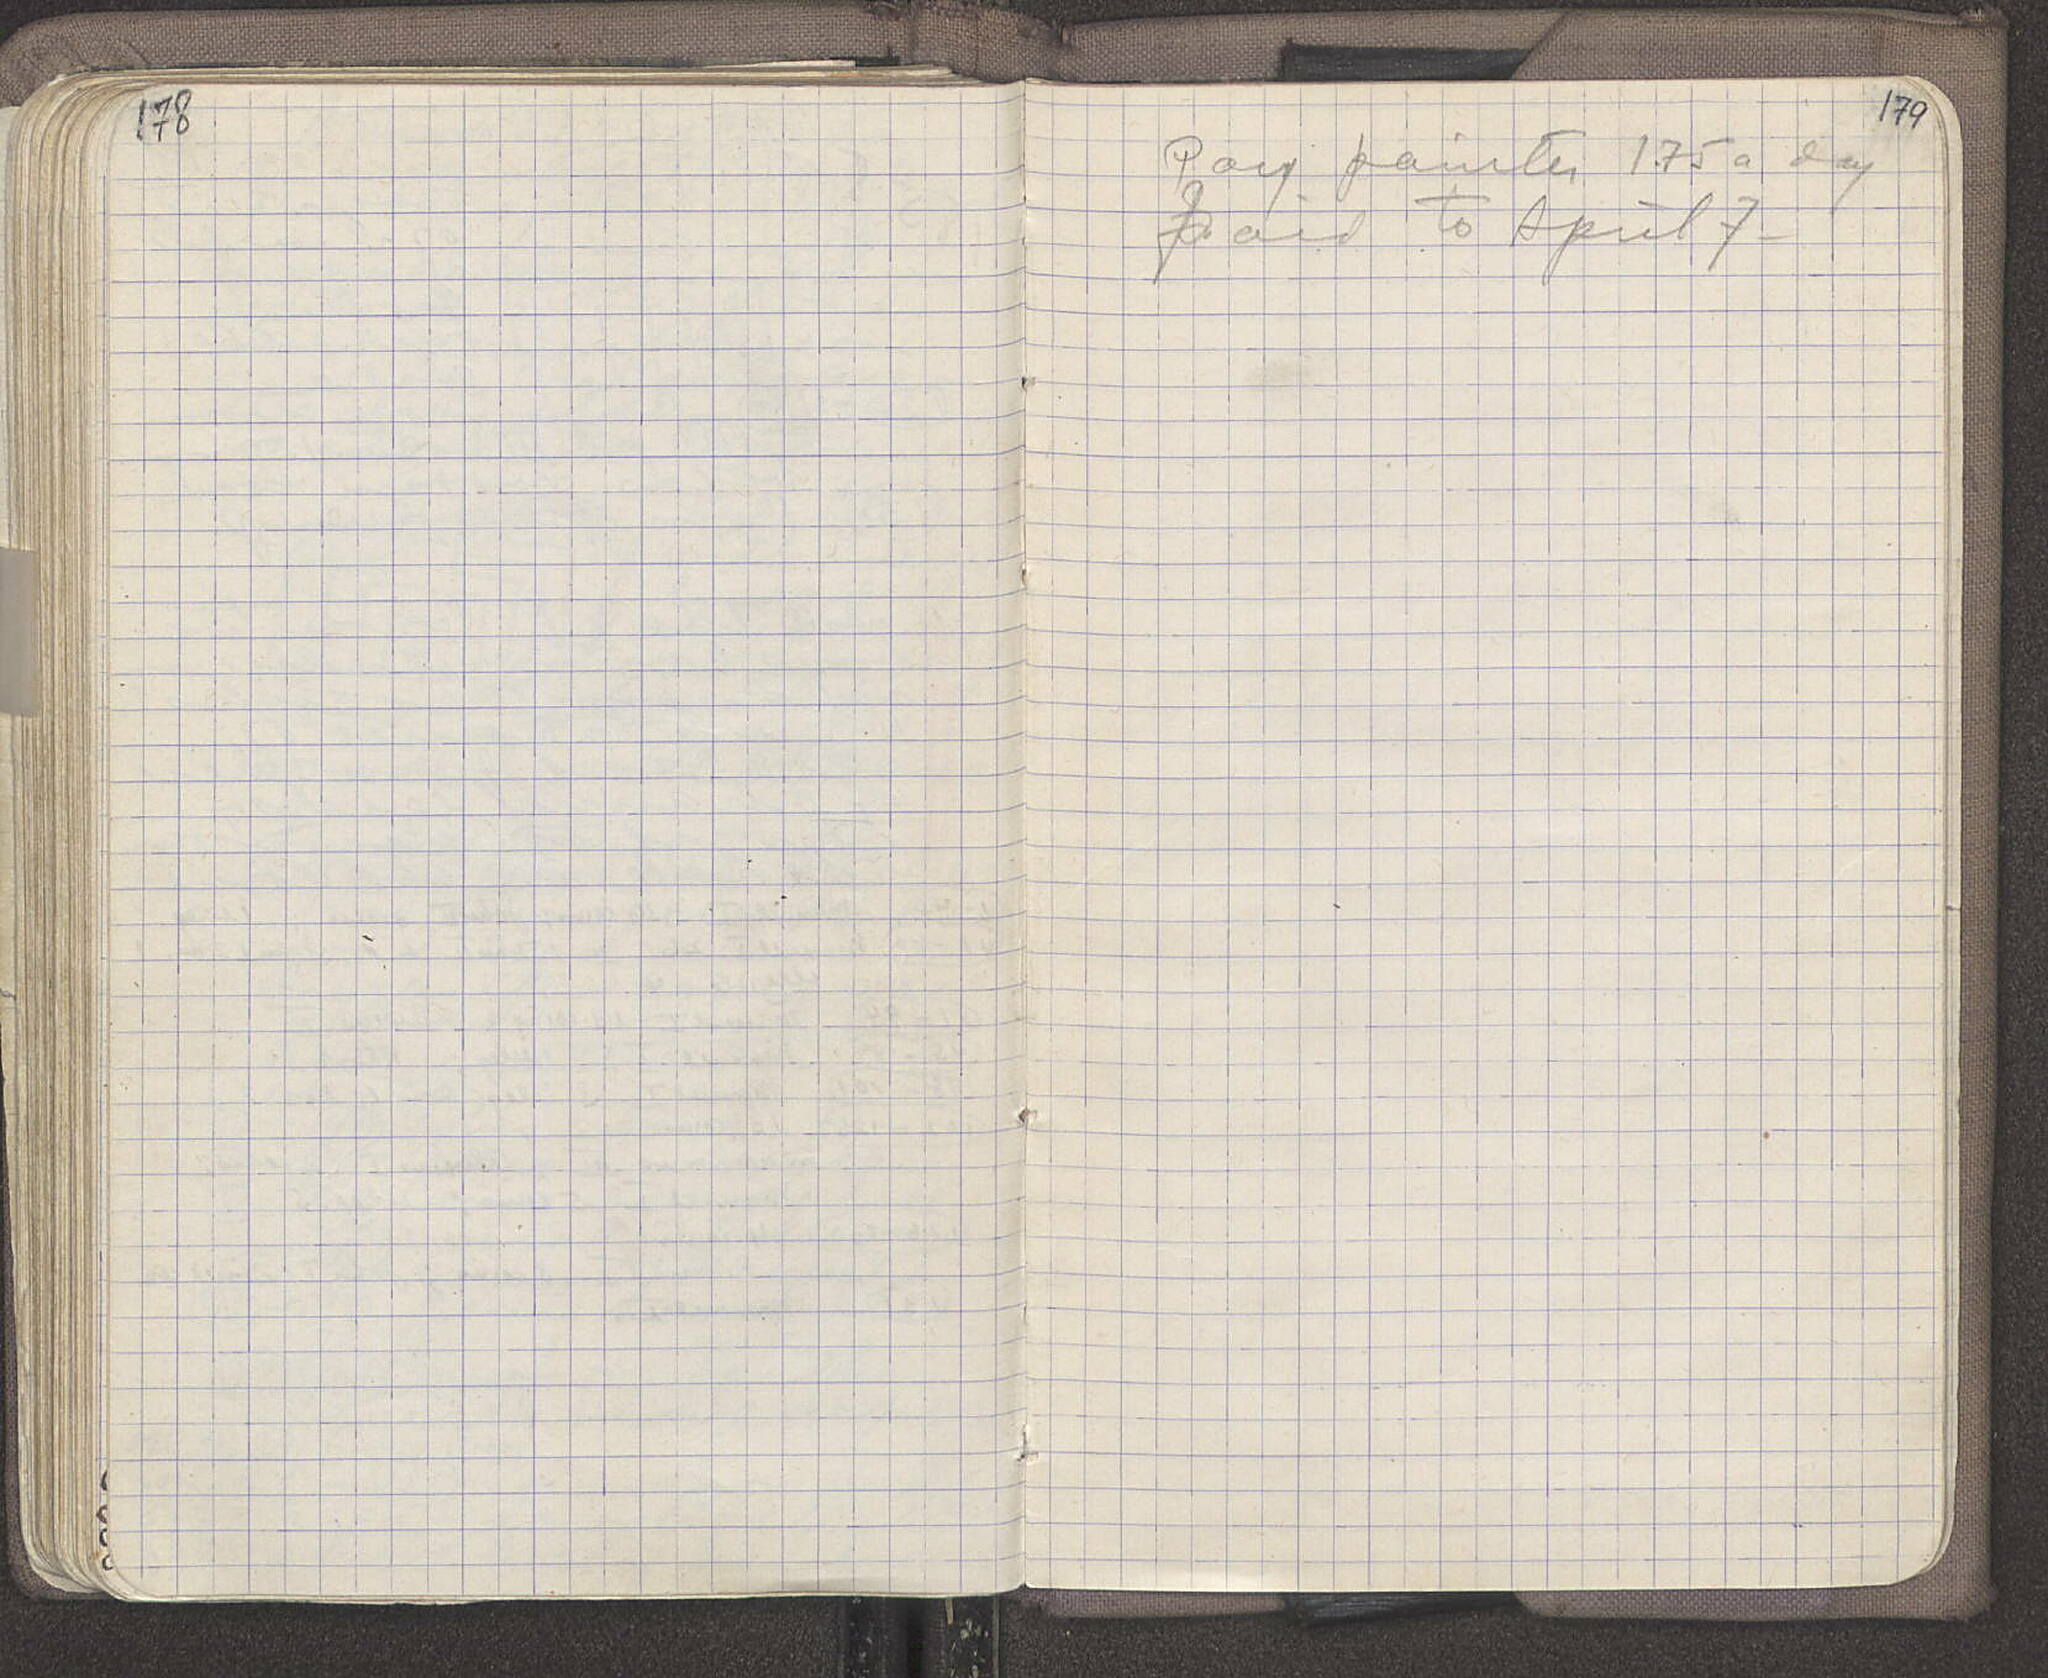 178
179
Pay painter 1.75 a day
paid to April 7 -